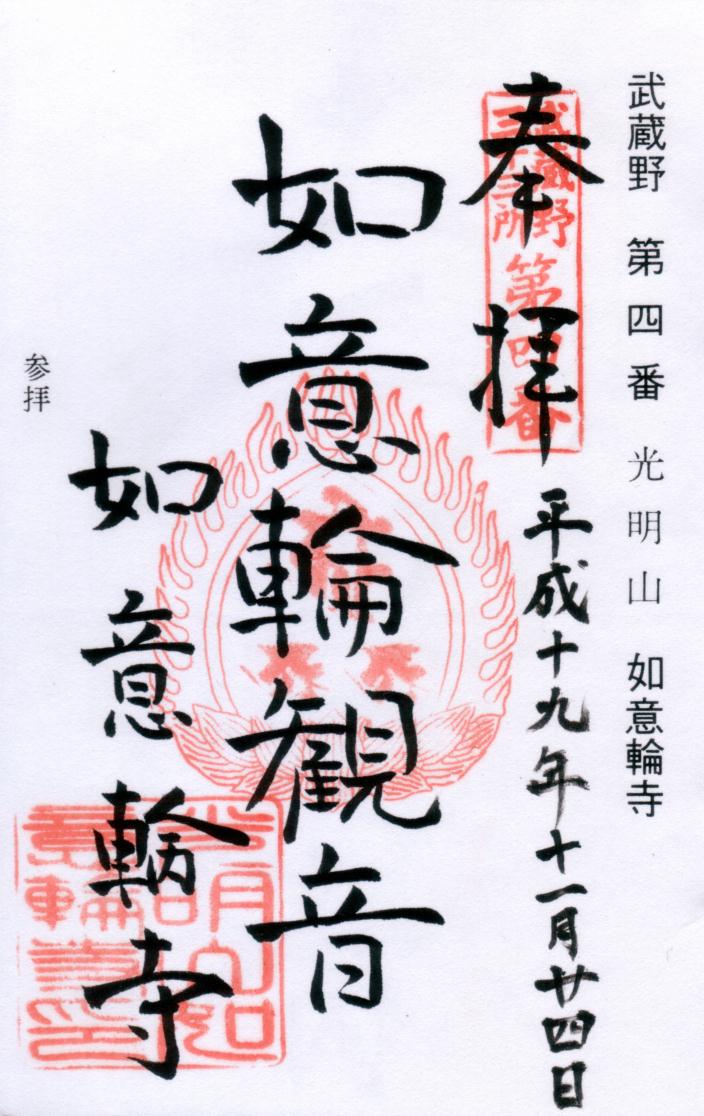 武蔵野 第四番 光明山 如意輪寺
奉拝
武蔵野
三十三所
第四番
平成十九年十一月廿四日
如意輪観音
如意輪寺
参拝